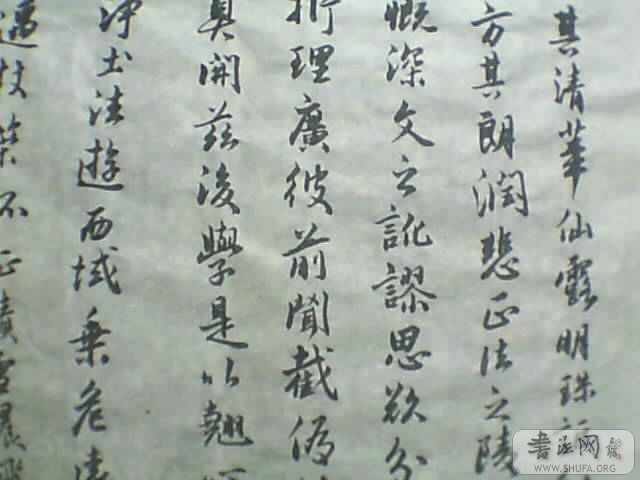 其清華仙露明珠詎
方其朗潤悲正法之陵
慨深文之訛謬思欲分
析理廣彼前聞截偽
真開茲後學是以翹
净土法遊西域乘危遠
遇杖策不正積雪晨
書法网
WWW.SHUFA.ORG